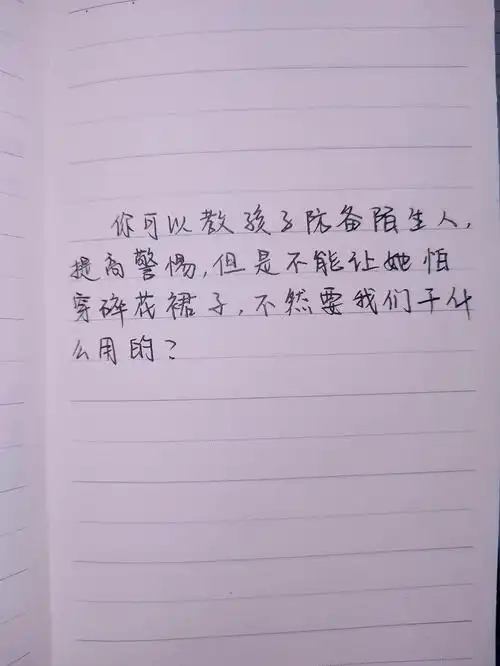 你可以教孩子防备陌生人,
提高警惕,但是不能让她怕
穿碎花裙子,不然要我们干什
么用的?